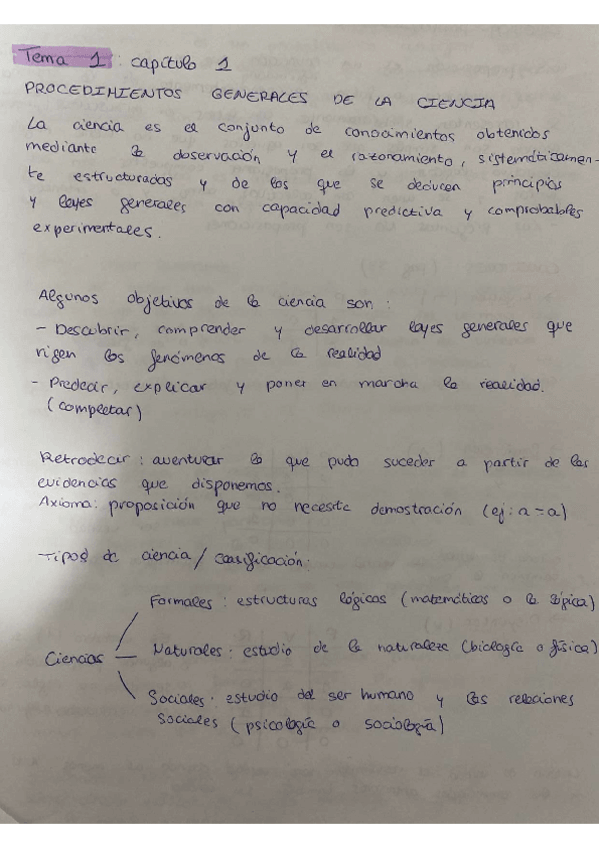 Tema 1: capítulo 1
PROCEDIMIENTOS GENERALES DE LA CIENCIA
La ciencia es el conjunto de conocimientos obtenidos
mediante la observación y el razonamiento, sistemáticamen-
te estructurados y de los que se deducen principios
y leyes generales con capacidad predictiva y comprobables
experimentales.
Algunos objetivos de la ciencia son:
- Descubrir, comprender y desarrollar leyes generales que
rigen los fenómenos de la realidad
- Predecir, explicar y poner en marcha la realidad.
(completar)
Retrodecir: aventurar lo que pudo suceder a partir de las
evidencias que disponemos.
Axioma: proposición que no necesita demostración (ej: a = a)
Tipos de ciencia / clasificación:
Formales: estructuras lógicas (matemáticas o la lógica)
Ciencias — Naturales: estudio de la naturaleza (biología o física)
Sociales: estudio del ser humano y las relaciones
sociales (psicología o sociología)